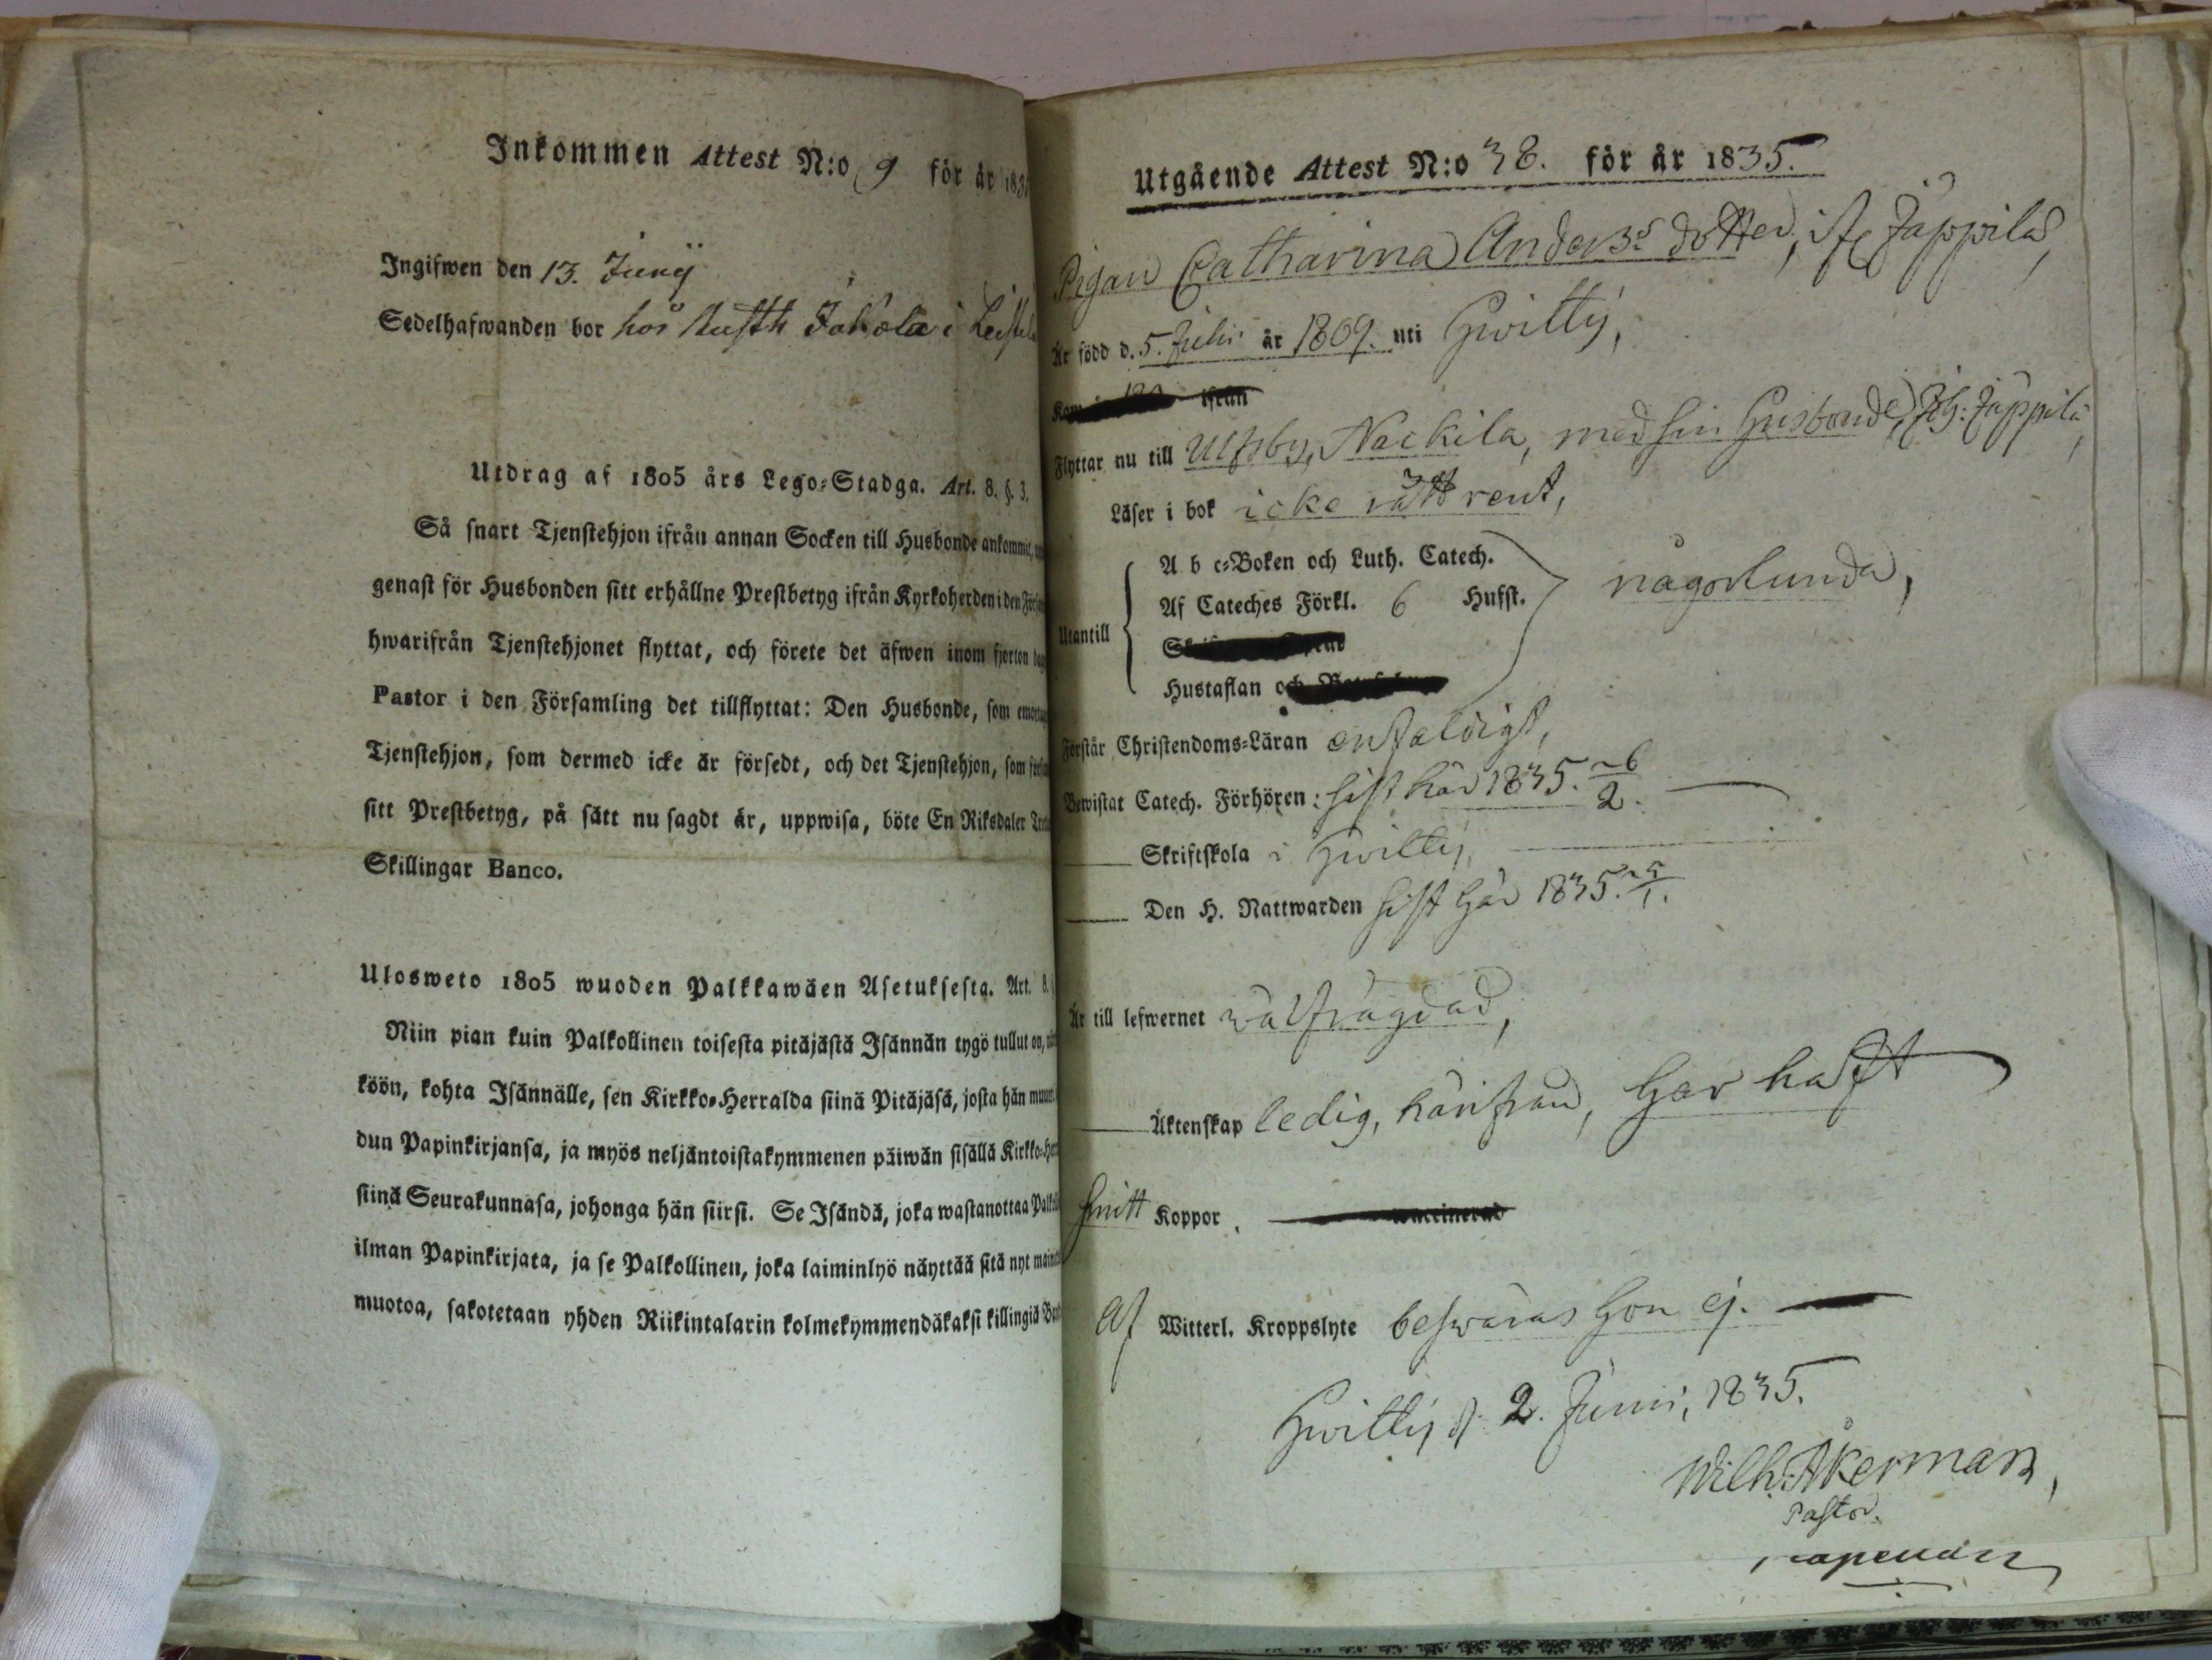 Inkommen Attest N:o 9 för år 183
Ingifwen den 13. Junÿ
Sedelhafwanden bor hos Rusth Jakola i
Utdrag af 1805 års Lego-Stadga. Art. 8. §. 3.
Så snart Tjenstehjon ifrån annan Socken till Husbonde ankommit,
genast för Husbonden sitt erhållne Prestbetyg ifrån Kyrkoherden i den
hwarifrån Tjenstehjonet flyttat, och förete det äfwen inom fjorton
Pastor i den Församling det tillflyttat: Den Husbonde, som
Tjenstehjon, som dermed icke är försedt, och det Tjenstehjon, som
sitt Prestbetyg, på sätt nu sagdt är, uppwisa, böte En Riksdaler
Skillingar Banco.
Ulosweto 1805 wuoden Palkkawäen Asetuksesta. Art. 8.
Niin pian kuin Palkollinen toisesta pitäjästä Isännän tygö tullut on,
köön, kohta Isännälle, sen Kirkko-Herralda siinä Pitäjäsä, josta hän
dun Papinkirjansa, ja myös neljäntoistakymmenen päiwän sisällä
siinä Seurakunnasa, johonga hän siirsi. Se Isändä, joka wastanottaa
ilman Papinkirjata, ja se Palkollinen, joka laiminlyö näyttää sitä nyt
muotoa, sakotetaan yhden Riikintalarin kolmekymmendäkaksi killingiä
Utgående Attest N:o 38. för år 1835.
Pigan Catharina Anders dotter, ifr Jäppilä,
Är född d. 5. Julii år 1809. uti Hvittis,
ifrån
Flyttar nu till Ulfsby, Nackila, med sin Husbonde, Joh: Jäppilä,
Läser i bok icke rätt rent,
Utantill
A b c-Boken och Luth. Catech.
Af Cateches Förkl. 6 Hufst.
någorlunda,
Hustaflan och
Förstår Christendoms-Läran enfaldigt,
Bewistat Catech. Förhören: sist här 1835. 26/2.
Skriftskola i Hvittis,
Den H. Nattwarden sist här 1835. 25/1.
Är till lefwernet wälfrägdad,
Äktenskap ledig, härifrån, har haft
smitt Koppor, waccinerad
Af Witterl. Kroppslyte beswäras hon ej.
Hvittis d. 2. Junii, 1835.
Wilh. Åkerman,
Pastor.